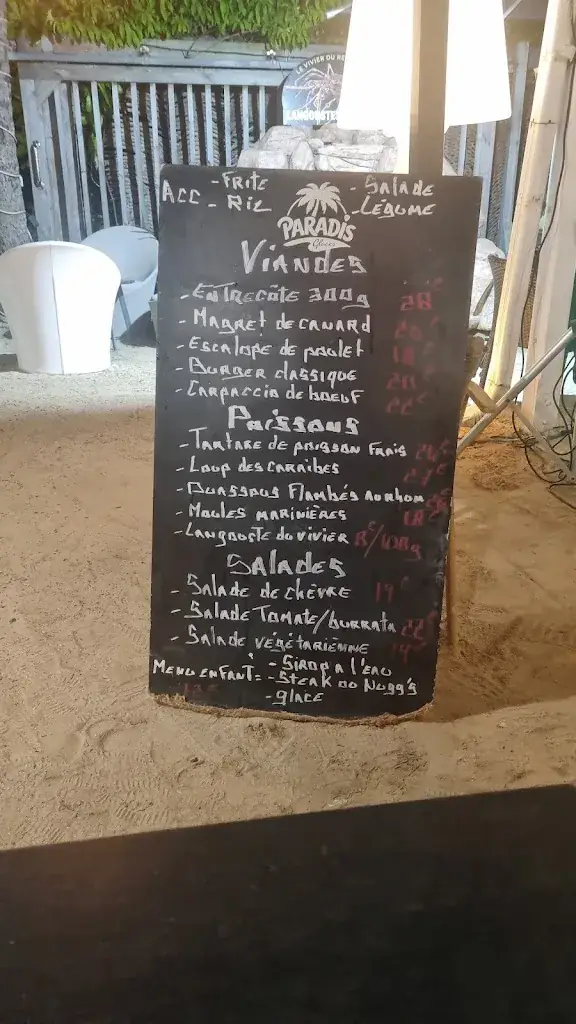 LE VIVIER DU
LANGOUSTE
ACC - FRITE - SALADE
- RIZ - LÉGUME
PARADIS
Glaces
VIANDES
- ENTRECÔTE 300g 28€
- MAGRET DE CANARD
- ESCALOPE DE POULET
- BURGER CLASSIQUE 20€
- CARPACCIO DE BOEUF 22€
POISSONS
- TARTARE DE POISSON FRAIS
- LOUP DES CARAIBES
- OUASSOUS FLAMBÉS AU RHUM
- MOULES MARINIÈRES 18€
- LANGOUSTE DU VIVIER
SALADES
- SALADE DE CHÈVRE 19€
- SALADE TOMATE/BURRATA 22€
- SALADE VÉGÉTARIENNE 19€
MENU ENFANT: - SIROP A L'EAU
- STEAK OU NUGG'S
- GLACE